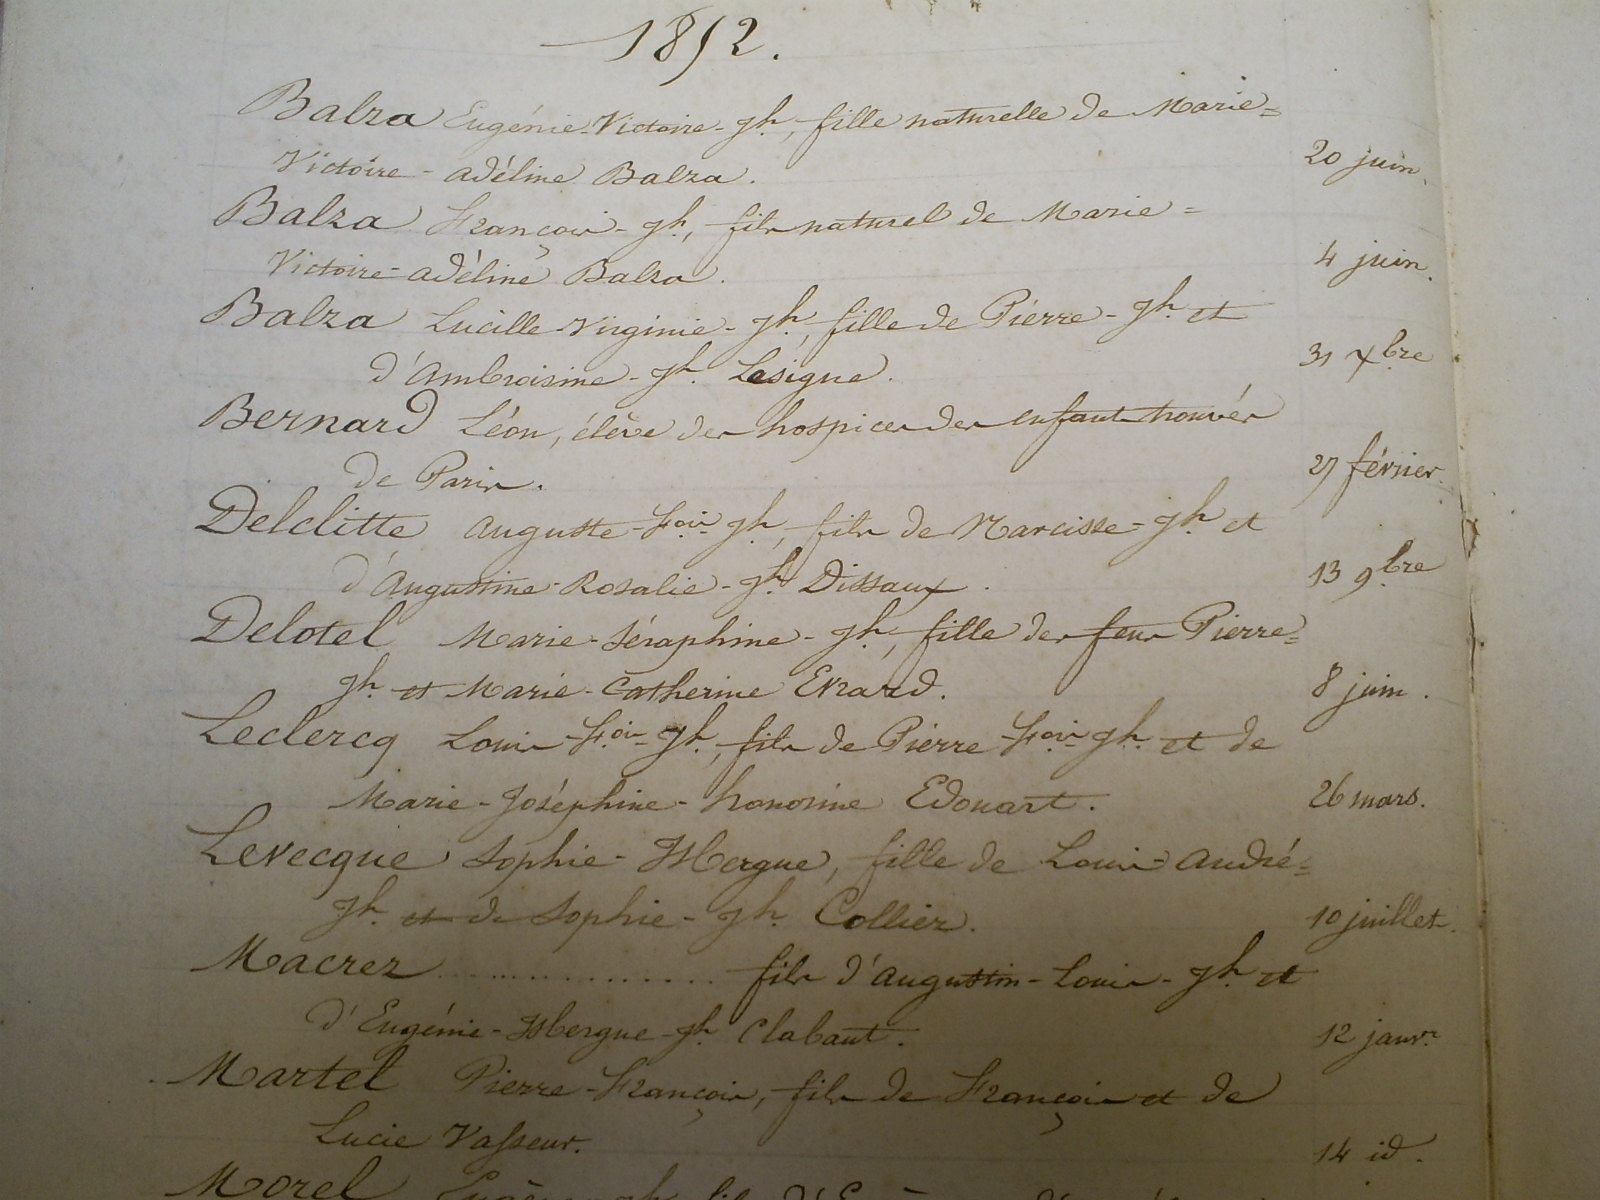 1852.
Balza Eugénie-Victoire-Jh, fille naturelle de Marie=
Victoire-adéline Balza. 20 juin.
Balza François-Jh, fils naturel de Marie=
Victoire-adéline Balza. 4 juin.
Balza Lucille-Virginie-Jh, fille de Pierre-Jh et
d'Ambroisine-Jh Lesigne. 31 Xbre
Bernard Léon, élève des hospices des enfants trouvés
de Paris. 27 février.
Delclitte Auguste-Fois Jh, fils de Narcisse-Jh et
d'Augustine-Rosalie-Jh Dissaux. 13 9bre
Delotel Marie-Séraphine-Jh, fille des feus Pierre=
Jh et Marie-Catherine Evrard. 8 juin.
Leclercq Louis-Fois-Jh, fils de Pierre Fois-Jh et de
Marie-Joséphine-honorine Edouart. 26 mars.
Levecque Sophie-Isbergue, fille de Louis-André=
Jh et de Sophie-Jh Collier. 10 juillet.
Macrez ................ fils d'Augustin-Louis-Jh et
d'Eugénie-Isbergue-Jh Clabaut. 12 janvr
Martel Pierre-François, fils de François et de
Lucie Vasseur. 14 id.
Morel